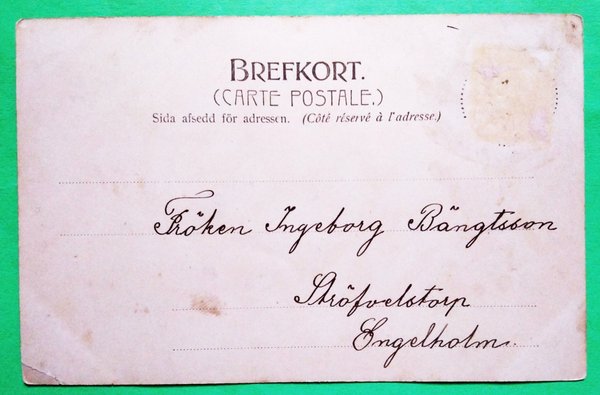 BREFKORT.
(CARTE POSTALE.)
Sida afsedd för adressen. (Côté réservé à l'adresse.)
Fröken Ingeborg Bängtsson
Ströfvelstorp
Engelholm.